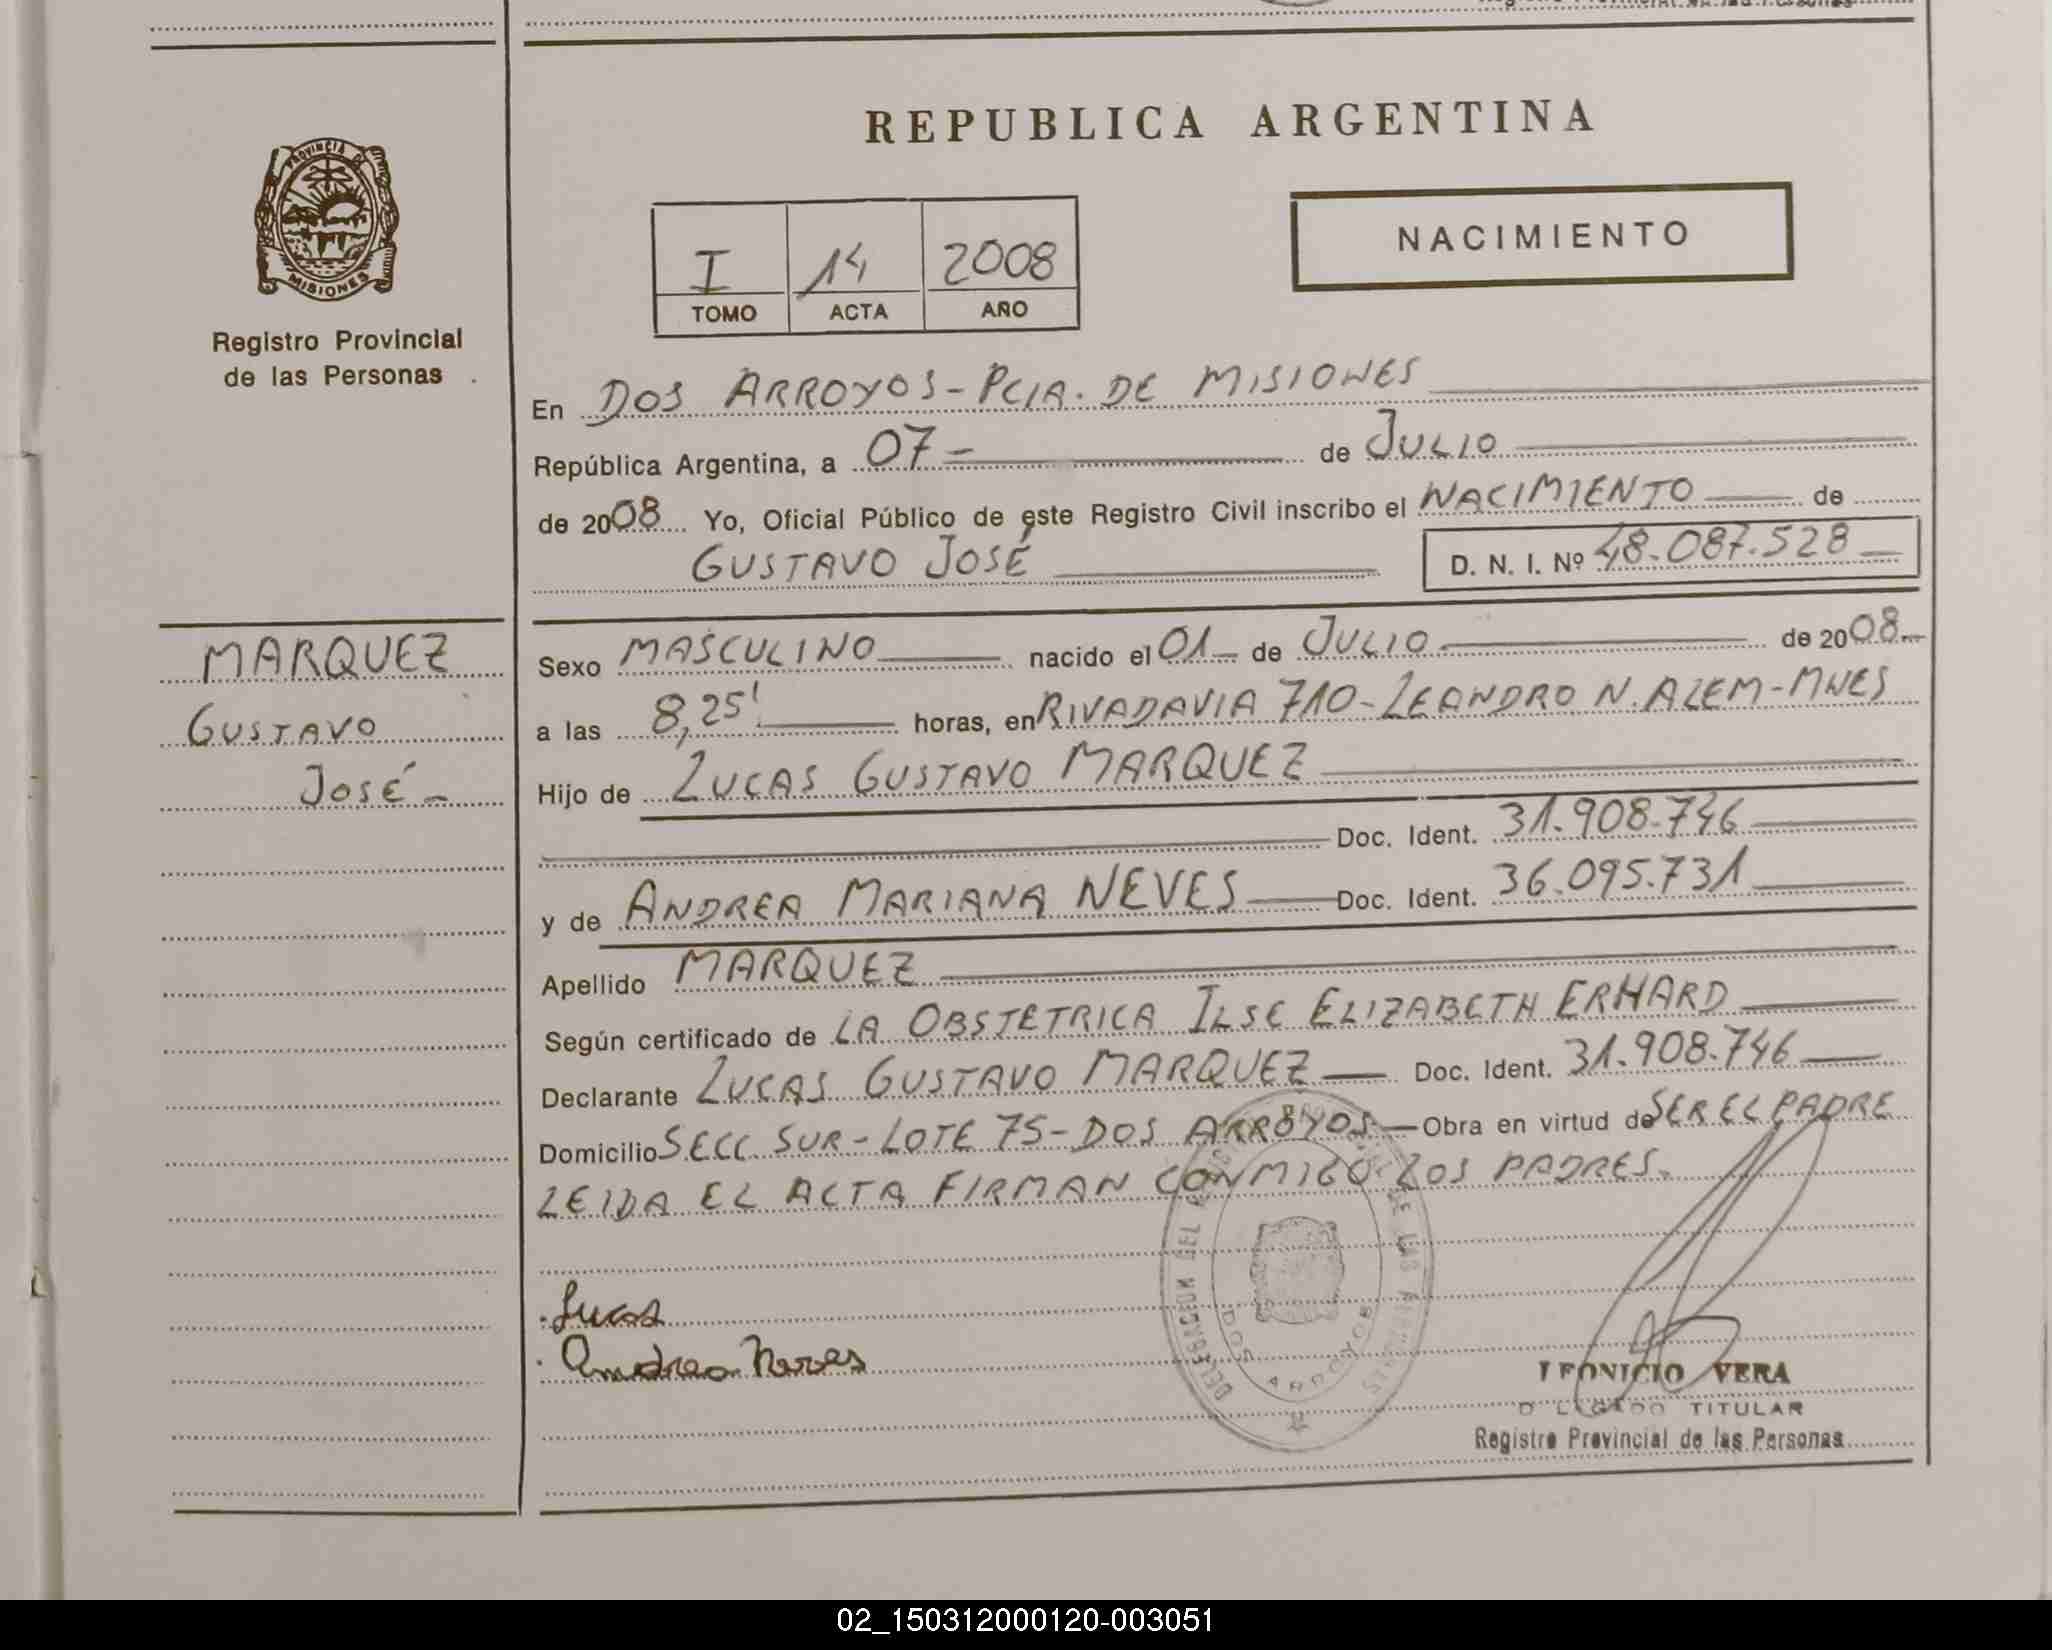 PROVINCIA DE
MISIONES
Registro Provincial
de las Personas
MARQUEZ
GUSTAVO
JOSÉ
REPUBLICA ARGENTINA
I 14 2008
TOMO ACTA AÑO
NACIMIENTO
En DOS ARROYOS - PCIA. DE MISIONES
República Argentina, a 07 - de JULIO
de 2008 Yo, Oficial Público de este Registro Civil inscribo el NACIMIENTO de
GUSTAVO JOSÉ D. N. I. Nº 48.087.528
Sexo MASCULINO nacido el 01 de JULIO de 2008
a las 8,25' horas, en RIVADAVIA 710 - LEANDRO N. ALEM - MNES
Hijo de LUCAS GUSTAVO MARQUEZ
Doc. Ident. 31.908.746
y de ANDREA MARIANA NEVES Doc. Ident. 36.095.731
Apellido MARQUEZ
Según certificado de LA OBSTETRICA ILSE ELIZABETH ERHARD
Declarante LUCAS GUSTAVO MARQUEZ Doc. Ident. 31.908.746
Domicilio SECC. SUR - LOTE 75 - DOS ARROYOS Obra en virtud de SER EL PADRE
LEIDA EL ACTA FIRMAN CONMIGO LOS PADRES.
Lucas
Andrea Neves
DOS ARROYOS
VERA
TITULAR
Registro Provincial de las Personas
02_150312000120-003051